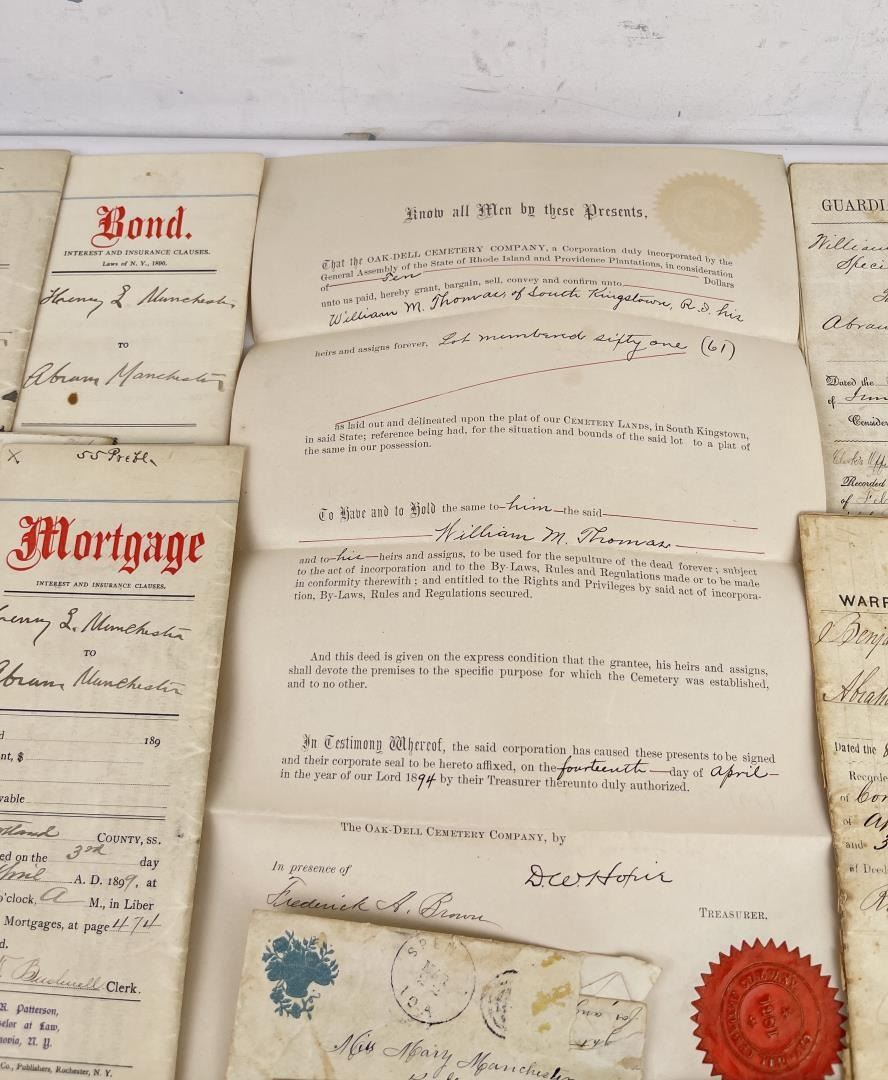 Bond.
INTEREST AND INSURANCE CLAUSES.
Laws of N. Y., 1890.
Henry L Manchester
TO
Abram Manchester
55 Preble
X
Mortgage
INTEREST AND INSURANCE CLAUSES.
Henry L. Manchester
TO
Abram Manchester
189
nt, $
yable
COUNTY, SS.
ed on the 3rd day
April A. D. 1899, at
o'clock, A M., in Liber
Mortgages, at page 474
d.
Bushnell Clerk.
R. Patterson,
selor at Law,
novia, N. Y.
Co., Publishers, Rochester, N. Y.
Know all Men by these Presents,
That the OAK-DELL CEMETERY COMPANY, a Corporation duly incorporated by the
General Assembly of the State of Rhode Island and Providence Plantations, in consideration
of Ten Dollars
unto us paid, hereby grant, bargain, sell, convey and confirm unto
William M. Thomas of South Kingstown, R.I. his
heirs and assigns forever, Lot numbered sixty one (61)
as laid out and delineated upon the plat of our CEMETERY LANDS, in South Kingstown,
in said State; reference being had, for the situation and bounds of the said lot to a plat of
the same in our possession.
To Have and to Hold the same to him the said
William M. Thomas
and to his heirs and assigns, to be used for the sepulture of the dead forever; subject
to the act of incorporation and to the By-Laws, Rules and Regulations made or to be made
in conformity therewith; and entitled to the Rights and Privileges by said act of incorpora-
tion, By-Laws, Rules and Regulations secured.
And this deed is given on the express condition that the grantee, his heirs and assigns,
shall devote the premises to the specific purpose for which the Cemetery was established,
and to no other.
In Testimony Whereof, the said corporation has caused these presents to be signed
and their corporate seal to be hereto affixed, on the fourteenth day of April
in the year of our Lord 1894 by their Treasurer thereunto duly authorized.
THE OAK-DELL CEMETERY COMPANY, by
In presence of
Frederick A. Brown
TREASURER.
IOA
Miss Mary Manchester
1881
GUARDI
William
Speci
Abra
Dated the
of June
Consider
Recorded
of Feb
WARR
Benja
Abrah
Dated the
Recorde
of Con
of Ap
and 3
of Deed